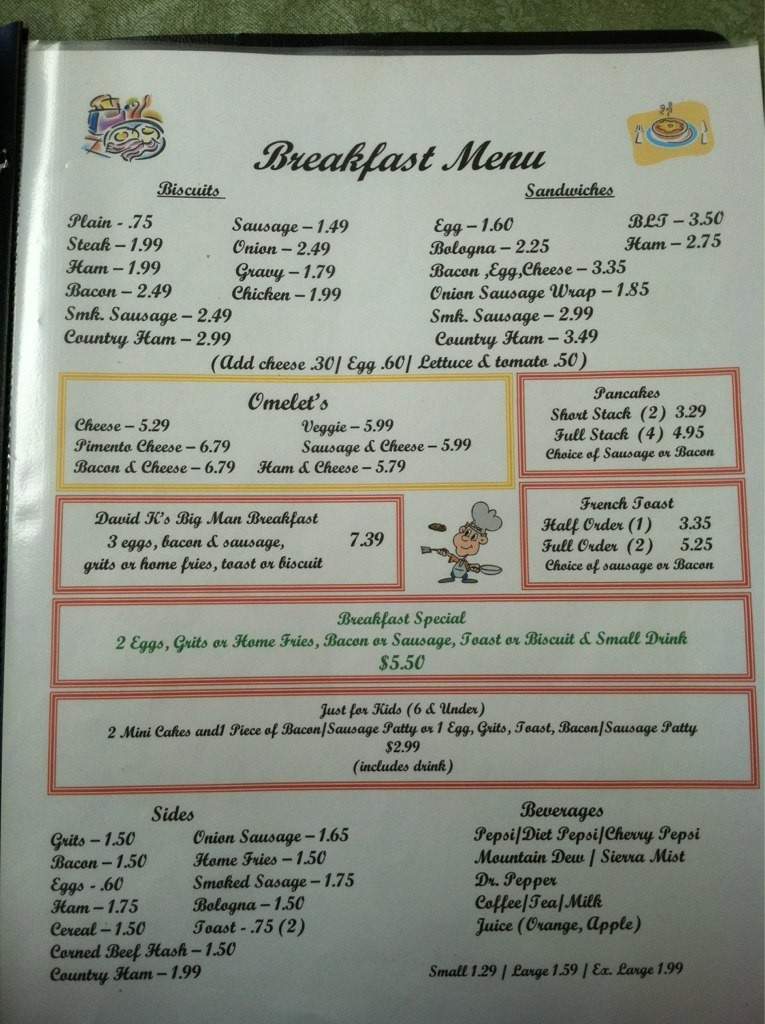 Breakfast Menu
Biscuits
Plain - .75
Steak – 1.99
Ham – 1.99
Bacon – 2.49
Smk. Sausage – 2.49
Country Ham – 2.99
Sausage – 1.49
Onion – 2.49
Gravy – 1.79
Chicken – 1.99
Sandwiches
Egg – 1.60
Bologna – 2.25
Bacon ,Egg,Cheese – 3.35
Onion Sausage Wrap – 1.85
Smk. Sausage – 2.99
Country Ham – 3.49
BLT – 3.50
Ham – 2.75
(Add cheese .30/ Egg .60/ Lettuce & tomato .50)
Omelet's
Cheese – 5.29
Veggie – 5.99
Pimento Cheese – 6.79
Sausage & Cheese – 5.99
Bacon & Cheese – 6.79
Ham & Cheese – 5.79
Pancakes
Short Stack (2) 3.29
Full Stack (4) 4.95
Choice of Sausage or Bacon
David K's Big Man Breakfast
3 eggs, bacon & sausage, 7.39
grits or home fries, toast or biscuit
French Toast
Half Order (1) 3.35
Full Order (2) 5.25
Choice of sausage or Bacon
Breakfast Special
2 Eggs, Grits or Home Fries, Bacon or Sausage, Toast or Biscuit & Small Drink
$5.50
Just for Kids (6 & Under)
2 Mini Cakes and1 Piece of Bacon/Sausage Patty or 1 Egg, Grits, Toast, Bacon/Sausage Patty
$2.99
(includes drink)
Sides
Grits – 1.50
Bacon – 1.50
Eggs - .60
Ham – 1.75
Cereal – 1.50
Corned Beef Hash – 1.50
Country Ham – 1.99
Onion Sausage – 1.65
Home Fries – 1.50
Smoked Sasage – 1.75
Bologna – 1.50
Toast - .75 (2)
Beverages
Pepsi/Diet Pepsi/Cherry Pepsi
Mountain Dew / Sierra Mist
Dr. Pepper
Coffee/Tea/Milk
Juice (Orange, Apple)
Small 1.29 | Large 1.59 | Ex. Large 1.99